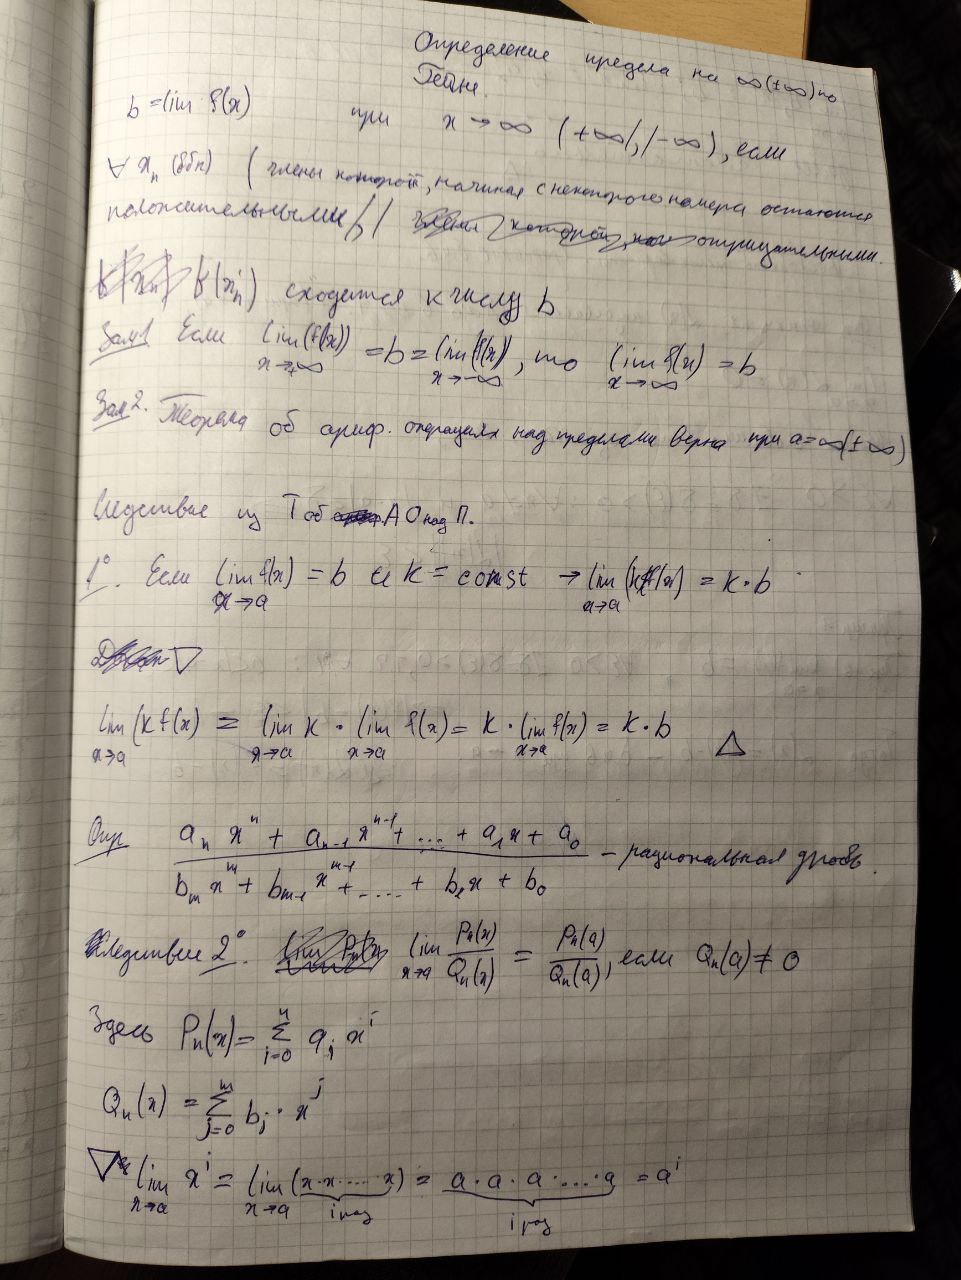 Определение предела на ∞(±∞) по
Гейне.
b = lim f(x) при x → ∞ (+∞/,/-∞), если
∀ xₙ (ббп) (члены которой, начиная с некоторого номера остаются
положительными/,/ отрицательными.
f(xₙ) сходится к числу b
Зам1 Если lim(f(x)) x→+∞ = b = lim(f(x)) x→-∞, то lim f(x) x→∞ = b
Зам2. Теорема об ариф. операциях над пределами верна при a=∞(±∞)
Следствие из Т об АО над П.
1°. Если lim f(x) x→a = b и k = const → lim (kf(x)) x→a = k·b
▽
lim (k f(x) x→a = lim k x→a · lim f(x) x→a = k · lim f(x) x→a = k·b △
Опр (aₙ xⁿ + aₙ₋₁ xⁿ⁻¹ + ... + a₁x + a₀) / (bₘ xᵐ + bₘ₋₁ xᵐ⁻¹ + .... + b₁x + b₀) – рациональная дробь.
Следствие 2°. lim x→a Pₙ(x)/Qₙ(x) = Pₙ(a)/Qₙ(a), если Qₙ(a) ≠ 0
Здесь Pₙ(x) = Σ i=0 n aᵢ xⁱ
Qₙ(x) = Σ j=0 m bⱼ · xʲ
▽ lim x→a xⁱ = lim x→a (x·x·....·x) i раз = a·a·a·....·a i раз = aⁱ